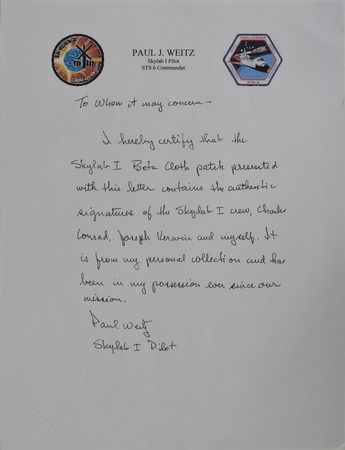 PAUL J. WEITZ
Skylab I Pilot
STS 6 Commander
To whom it may concern -
I hereby certify that the
Skylab I Beta Cloth patch presented
with this letter contains the authentic
signatures of the Skylab I crew, Charles
Conrad, Joseph Kerwin and myself. It
is from my personal collection and has
been in my possession ever since our
mission.
Paul Weitz
Skylab I Pilot